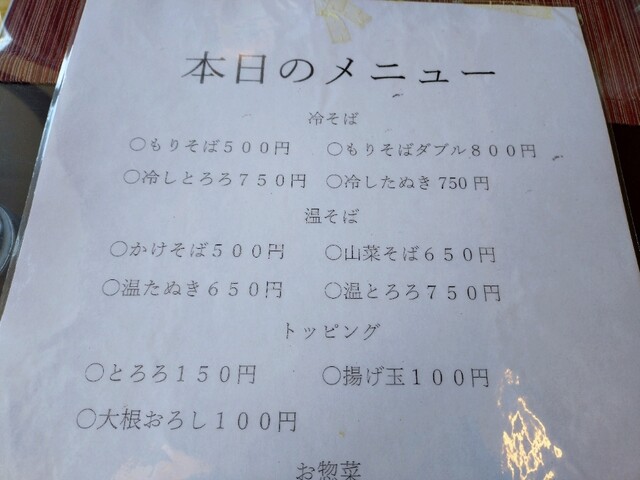 本日のメニュー
冷そば
〇もりそば５００円　〇もりそばダブル８００円
〇冷しとろろ７５０円　〇冷したぬき 750 円
温そば
〇かけそば５００円　〇山菜そば６５０円
〇温たぬき６５０円　〇温とろろ７５０円
トッピング
〇とろろ１５０円　〇揚げ玉１００円
〇大根おろし１００円
お惣菜